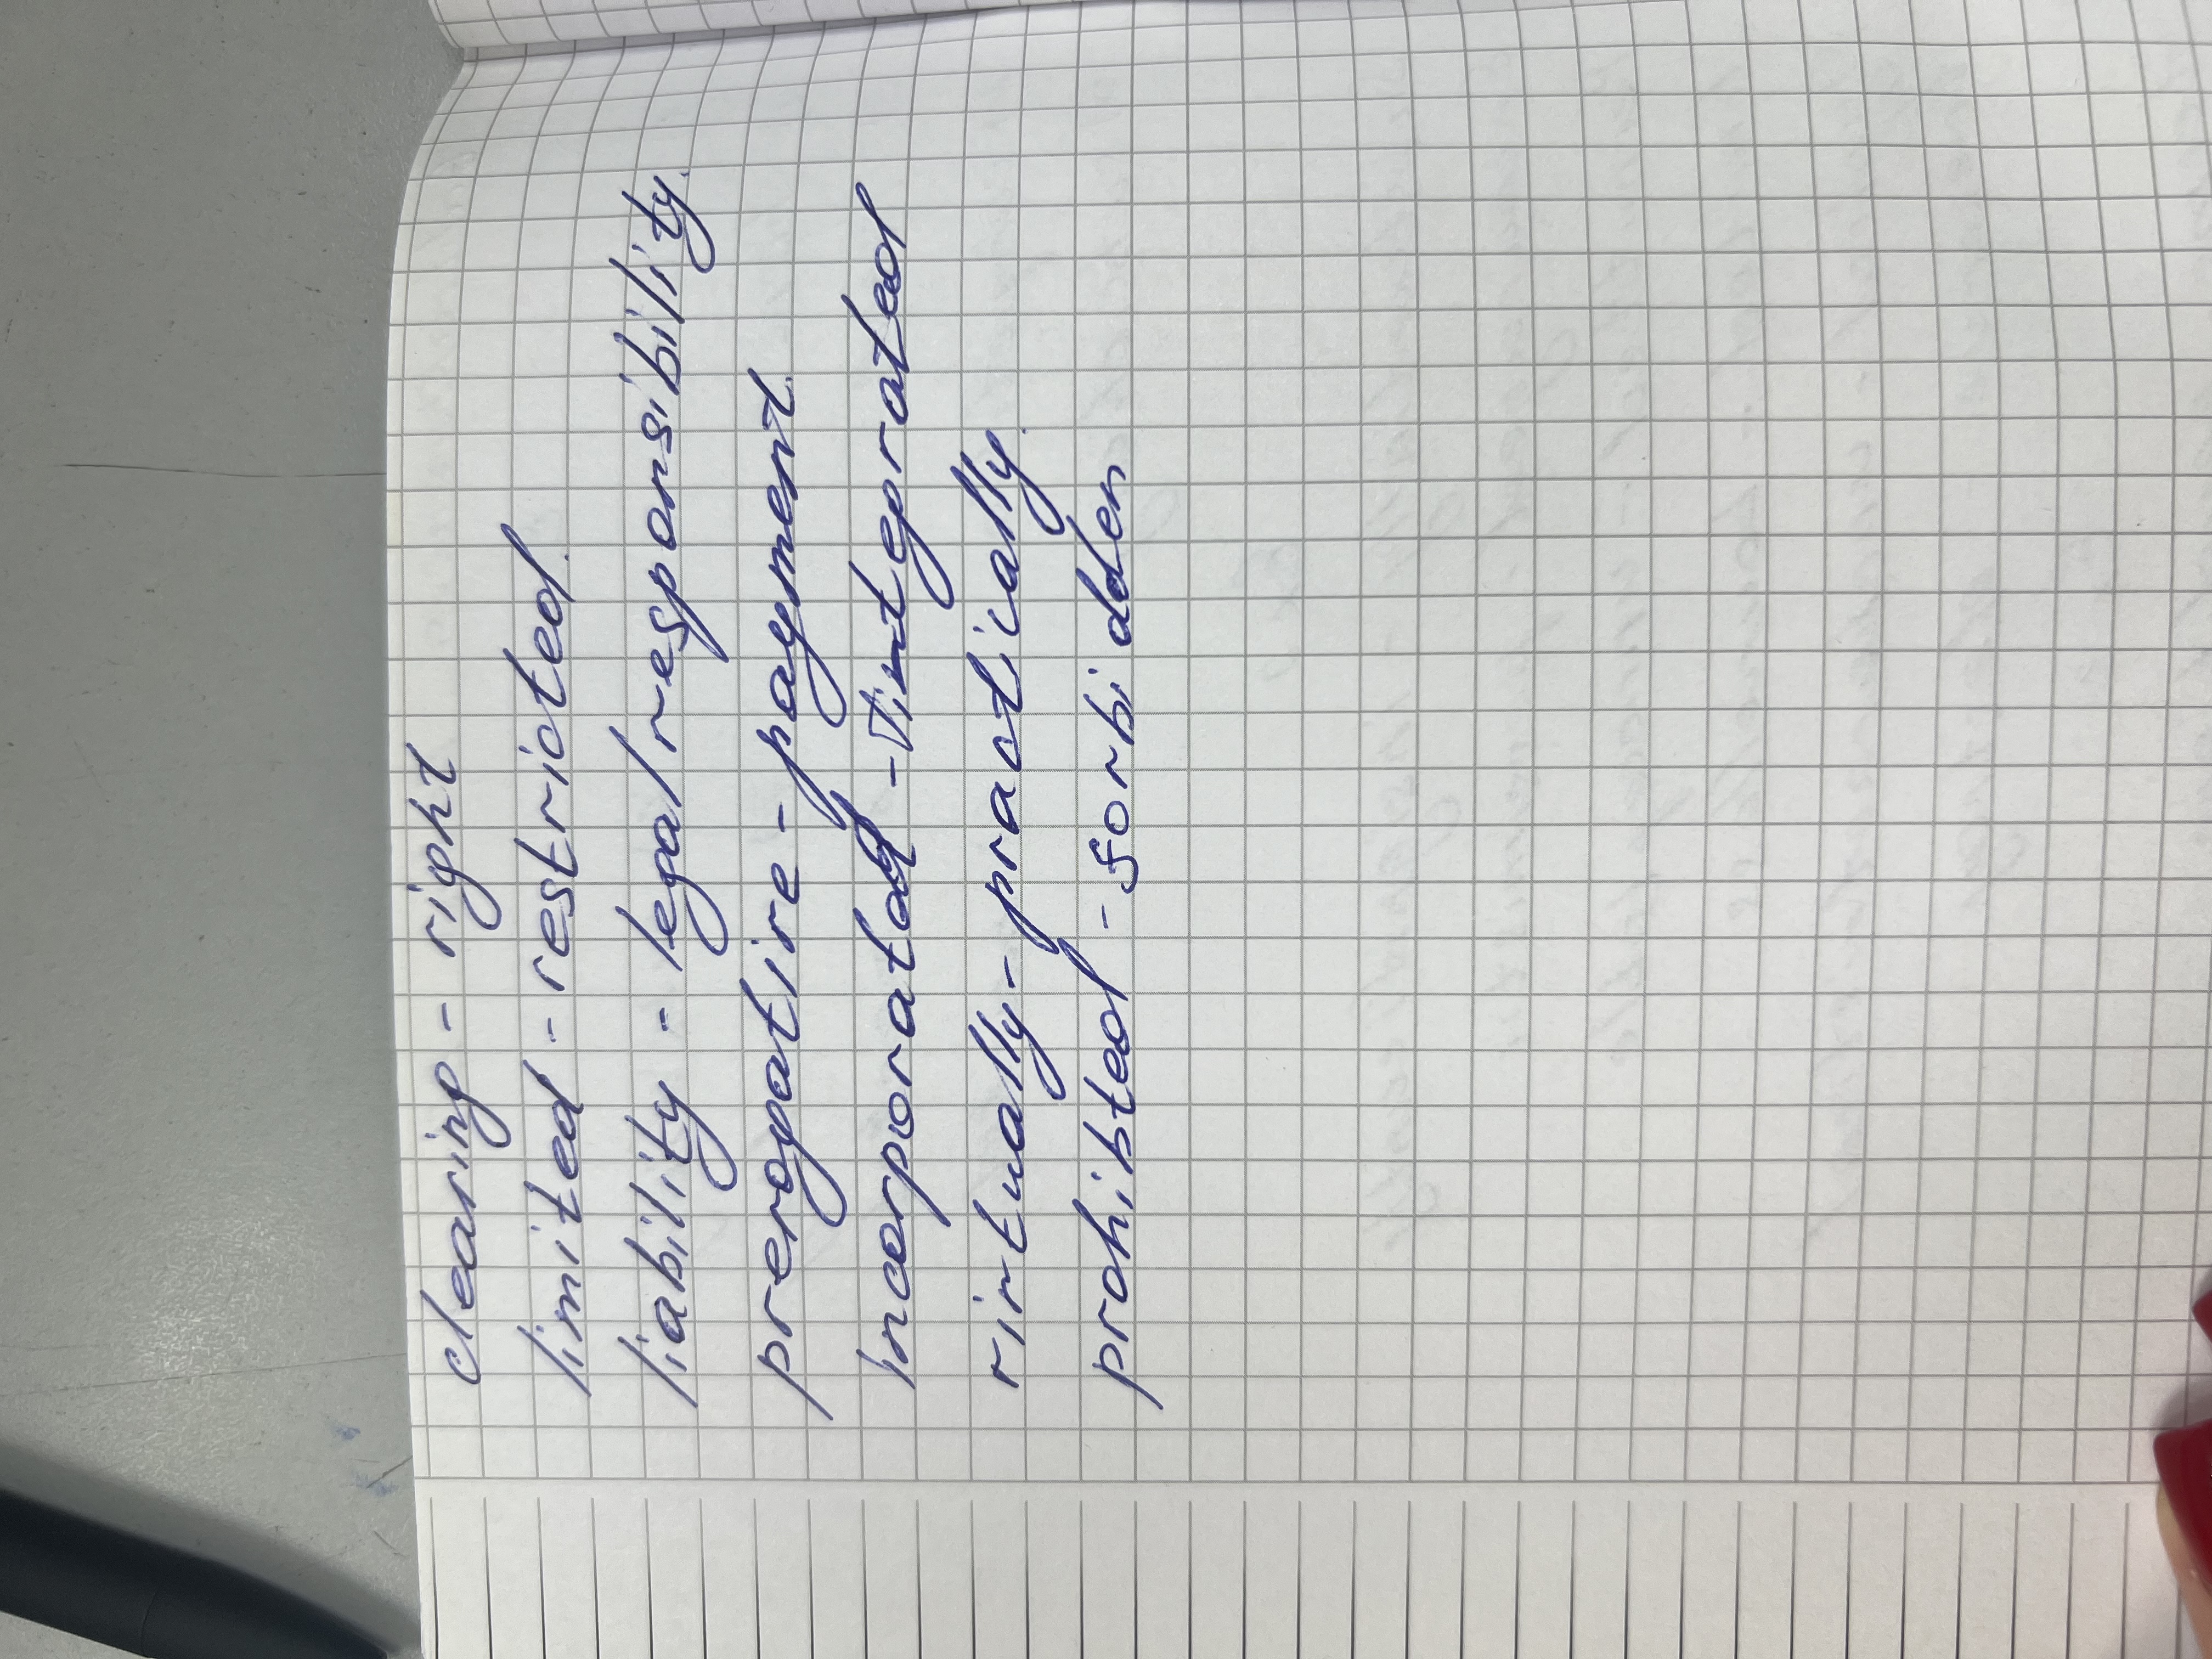 clearing - right
limited - restricted.
liability - legal responsibility.
prerogative - payment.
incorporated - integrated
virtually - practically.
prohibted - forbidden